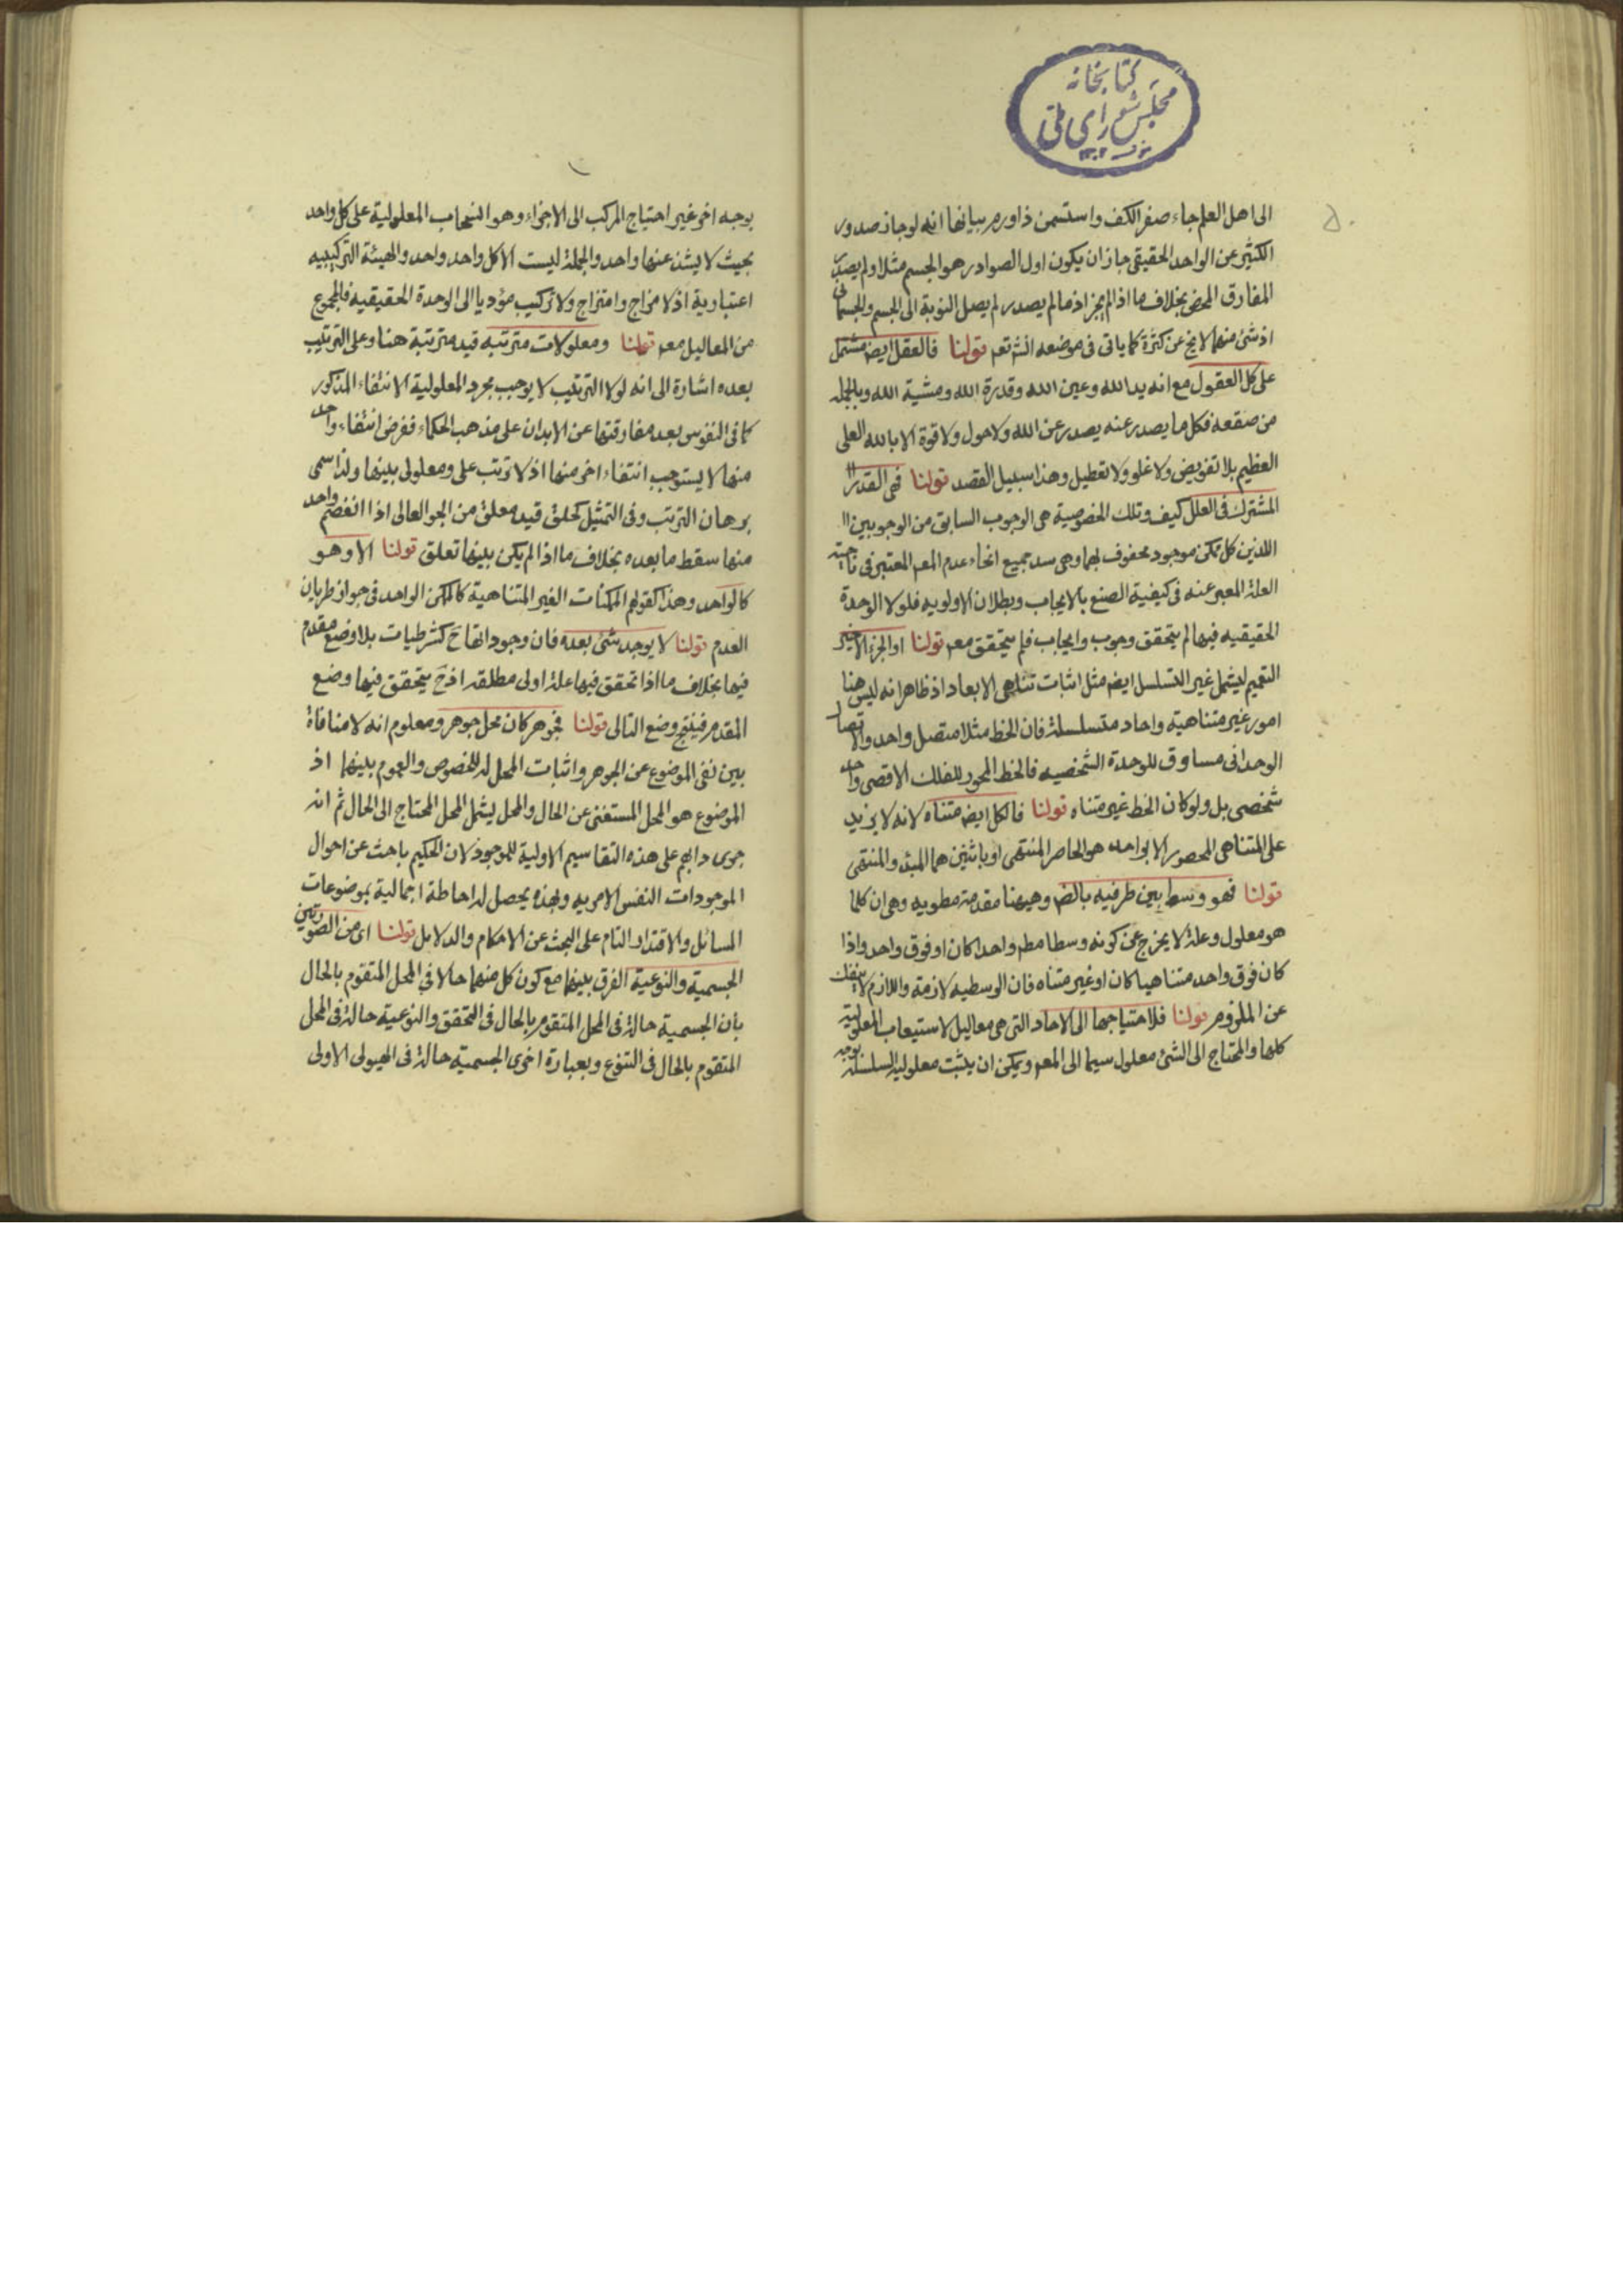 كتابخانه
مجلس شورای ملی
الى اهل العلم جاء صفر الكف واستسمن ذا ورم بيانها انه لو جاز صدور
الكثير عن الواحد الحقيقى جاز ان يكون اول الصوادر هو الجسم مثلا ولم يصدر
المفارق المحض بخلاف ما اذا لم يجز اذ ما لم يصدر لم يصل النوبة الى الجسم والجسمانى
اذ شئ منهما لا يخ عن كثرة كما ياتى فى موضعه انشئتم قولنا فالعقل ايض مشتمل
على كل العقول مع انه يد الله وعين الله وقدرة الله ومشية الله وبالجملة
من صقعه فكل ما يصدر عنه يصدر عن الله ولا حول ولا قوة الا بالله العلى
العظيم بلا تفويض ولا غلو ولا تعطيل وهذا سبيل القصد قولنا فهى القدر
المشترك فى العلل كيف وتلك الخصوصية هى الوجوب السابق من الوجوبين
اللذين كل ممكن موجود محفوف بهما وهى سد جميع انحاء عدم المعم المعتبر فى ناحية
العلة المعبر عنه فى كيفية الصنع بالايجاب وبطلان الاولويه فلولا الوحدة
الحقيقيه فيها لم يتحقق وجوب وايجاب فلم يتحقق معم قولنا او الجزء الاخير
التعميم ليشمل غير التسلسل ايض مثل اثبات تناهى الابعاد اذ ظاهر انه ليس هنا
امور غير متناهية واحاد متسلسلة فان الخط مثلا متصل واحد والاتصال
الوحدانى مساوق للوحدة الشخصيه فالخط المحور للفلك الاقصى واحد
شخصى بل ولو كان الخط غير متناه قولنا فالكل ايض متناه لانه لا يزيد
على المتناهى المحصور الا بواحد هو الحاصر المنتهى او باثنين هما المبدء والمنتهى
قولنا فهو وسط بين طرفيه بالض وهيهنا مقدمة مطويه وهى ان كلما
هو معلول وعلة لا يخرج عن كونه وسطا مطم واحدا كان او فوق واحد واذا
كان فوق واحد متناهيا كان او غير متناه فان الوسطيه لازمة واللازم لا ينفك
عن الملزوم قولنا فلاحتياجها الى الاحاد التى هى معاليل لاستيعاب المعلولية
كلها والمحتاج الى الشئ معلول سيما الى المعم ويمكن ان يثبت معلولية السلسلة بوجه
بوجه اخر غير احتياج المركب الى الاجزاء وهو انسحاب المعلولية على كل واحد
بحيث لا يشذ عنها واحد والجملة ليست الا كل واحد واحد والهيئة التركيبيه
اعتبارية اذ لا مزاج وامتزاج ولا تركيب مؤديا الى الوحدة الحقيقيه فالمجموع
من المعاليل معم قولنا ومعلولات مترتبه قيد مترتبة هنا وعلى الترتيب
بعده اشارة الى انه لولا الترتيب لا يوجب مجرد المعلولية الانتفاء المذكور
كما فى النفوس بعد مفارقتها عن الابدان على مذهب الحكماء ففرض انتفاء واحد
منها لا يستوجب انتفاء اخر منها اذ لا ترتب على ومعلولى بينها ولذا سمى
برهان الترتب وفى التمثيل كحلق قيد معلق من الجو العالى اذا انفصم واحد
منها سقط ما بعده بخلاف ما اذا لم يكن بينها تعلق قولنا الا وهو
كالواحد وهذا كقولهم الممكنات الغير المتناهية كالممكن الواحد فى جواز طريان
العدم قولنا لا يوجد شئ بعده فان وجوداتها ح كشرطيات بلا وضع مقدم
فيها بخلاف ما اذا تحقق فيها علة اولى مطلقه اذ ح يتحقق فيها وضع
المقدم فينتج وضع التالى قولنا فجوهر كان محل جوهر ومعلوم انه لا منافاة
بين نفى الموضوع عن الجوهر واثبات المحل له للخصوص والعموم بينهما اذ
الموضوع هو المحل المستغنى عن الحال والمحل يشمل المحل المحتاج الى الحال ثم انه
جرى دابهم على هذه التقاسيم الاولية للموجود لان الحكيم باحث عن احوال
الموجودات النفس الامريه وبهذه يحصل له احاطة اجمالية بموضوعات
المسائل والاقتدار التام على البحث عن الاحكام والدلايل قولنا اى من الصورتين
الجسمية والنوعية الفرق بينهما مع كون كل منهما حالا فى المحل المتقوم بالحال
بان الجسمية حالة فى المحل المتقوم بالحال فى التحقق والنوعية حالة فى المحل
المتقوم بالحال فى التنوع وبعبارة اخرى الجسمية حالة فى الهيولى الاولى